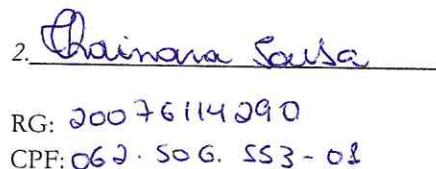 2. Thainara Sousa
RG: 20076114290
CPF: 062.506.553-01